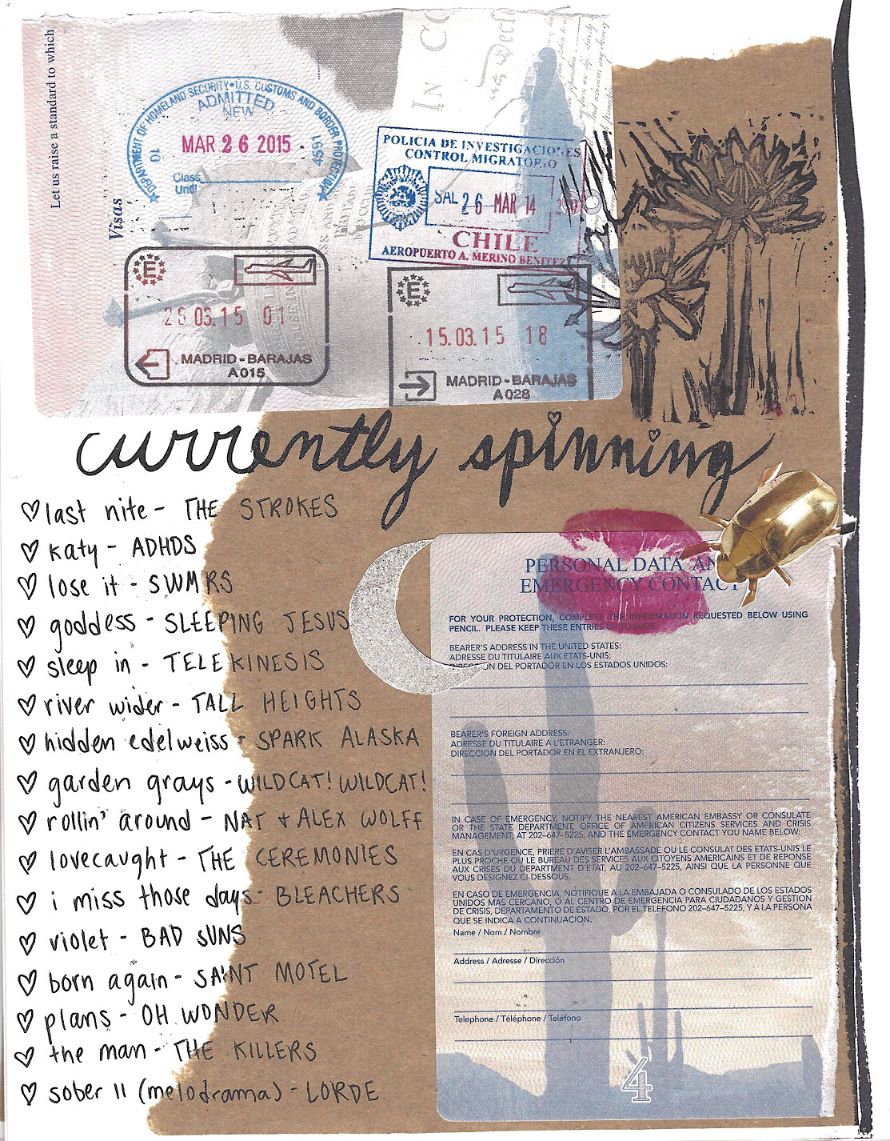 Let us raise a standard to which
Visas
DEPARTMENT OF HOMELAND SECURITY • U.S. CUSTOMS AND BORDER PROTECTION
ADMITTED
NEW
MAR 26 2015
10
4591
Class
Until
IN CO
POLICIA DE INVESTIGACIONES
CONTROL MIGRATORIO
SAL 26 MAR 14
CHILE
AEROPUERTO A. MERINO BENITEZ
E
28 03.15 01
MADRID - BARAJAS
A015
E
15.03.15 18
MADRID - BARAJAS
A028
currently spinning
last nite - THE STROKES
katy - ADHDS
lose it - SWMRS
goddess - SLEEPING JESUS
sleep in - TELEKINESIS
river wider - TALL HEIGHTS
hidden edelweiss - SPARK ALASKA
garden grays - WILDCAT! WILDCAT!
rollin' around - NAT + ALEX WOLFF
lovecaught - THE CEREMONIES
i miss those days - BLEACHERS
violet - BAD SUNS
born again - SAINT MOTEL
plans - OH WONDER
the man - THE KILLERS
sober II (melodrama) - LORDE
PERSONAL DATA AN
EMERGENCY CONTACT
FOR YOUR PROTECTION, COMPLETE THE INFORMATION REQUESTED BELOW USING
PENCIL. PLEASE KEEP THESE ENTRIES
BEARER'S ADDRESS IN THE UNITED STATES:
ADRESSE DU TITULAIRE AUX ETATS-UNIS:
DEL PORTADOR EN LOS ESTADOS UNIDOS:
BEARER'S FOREIGN ADDRESS:
ADRESSE DU TITULAIRE A L'ETRANGER:
DIRECCION DEL PORTADOR EN EL EXTRANJERO:
IN CASE OF EMERGENCY, NOTIFY THE NEAREST AMERICAN EMBASSY OR CONSULATE
OR THE STATE DEPARTMENT, OFFICE OF AMERICAN CITIZENS SERVICES AND CRISIS
MANAGEMENT AT 202-647-5225, AND THE EMERGENCY CONTACT YOU NAME BELOW.
EN CAS D'URGENCE, PRIERE D'AVISER L'AMBASSADE OU LE CONSULAT DES ETATS-UNIS LE
PLUS PROCHE OU LE BUREAU DES SERVICES AUX CITOYENS AMERICAINS ET DE REPONSE
AUX CRISES DU DEPARTEMENT D'ETAT, AU 202-647-5225, AINSI QUE LA PERSONNE QUE
VOUS DESIGNEZ CI-DESSOUS.
EN CASO DE EMERGENCIA, NOTIFIQUE A LA EMBAJADA O CONSULADO DE LOS ESTADOS
UNIDOS MAS CERCANO, O AL CENTRO DE EMERGENCIA PARA CIUDADANOS Y GESTION
DE CRISIS, DEPARTAMENTO DE ESTADO, POR EL TELEFONO 202-647-5225, Y A LA PERSONA
QUE SE INDICA A CONTINUACION.
Name / Nom / Nombre
Address / Adresse / Dirección
Telephone / Téléphone / Teléfono
4